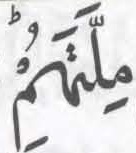 مِلَّتَهُمْؕ